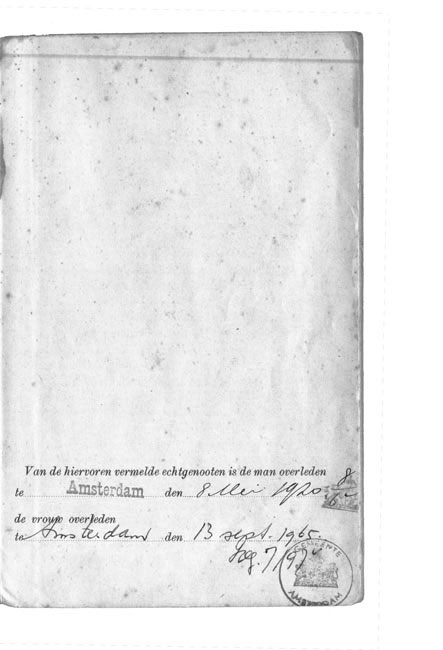 Van de hiervoren vermelde echtgenooten is de man overleden
te Amsterdam den 8 Mei 1920
de vrouw overleden
te Amsterdam den 13 sept. 1965.
GEMEENTE
AMSTERDAM